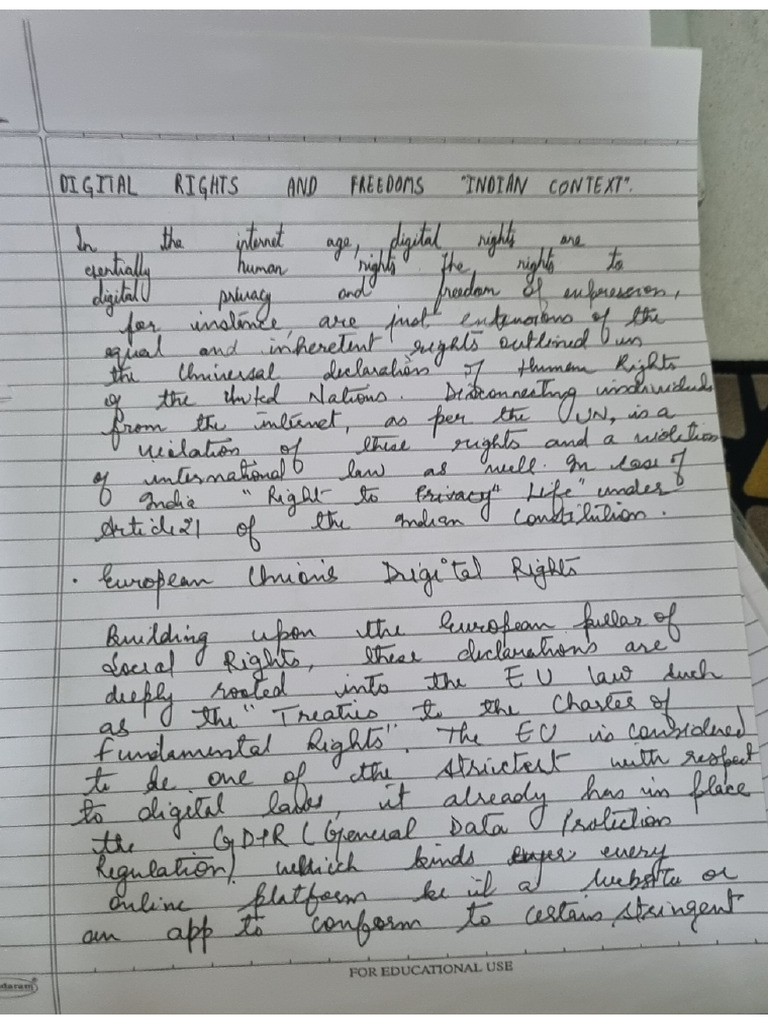 DIGITAL RIGHTS AND FREEDOMS "INDIAN CONTEXT".
In the internet age, digital rights are
esentially human rights. The rights to
digital privacy and freedom of expression,
for instance, are just extensions of the
equal and inheretent rights outlined in
the Universal declaration of Human Rights
of the United Nations. Disconnecting individuals
from the internet, as per the UN, is a
violation of these rights and a violation
of international law as well. In case of
India "Right to Privacy" Life" under
Article 21 of the Indian Constitution.
. European Union's Digital Rights
Building upon the European pillar of
Social Rights, these declarations are
deeply rooted into the EU law such
as the "Treaties to the Charter of
Fundamental Rights". The EU is considered
to be one of the strictest with respect
to digital laws, it already has in place
the GDPR (General Data Protection
Regulation) which binds every
online platform be it a website or
an app to conform to certain stringent
FOR EDUCATIONAL USE
daram